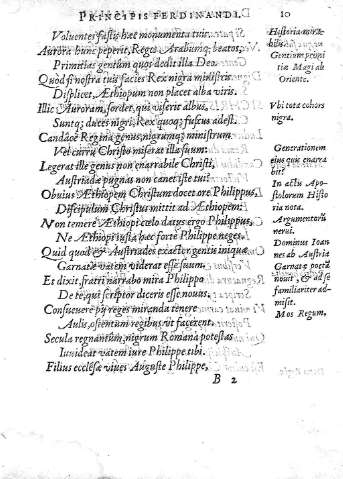 PRINCIPIS FERDINANDI. 10
Voluentes fastis hæc monumenta tuis.
Aurora hunc peperit, Reges Arabumq; beatos,
Primitias gentium quos dedit illa Deo.
Quod si nostra tuis facies Rex nigra ministris
Displicet, Æthiopum non placet alba viris.
Illic Auroram, sordet, qui viserit albus,
Suntq; duces nigri, Rex quoq; fuscus adest.
Candace Regina genus, nigrumq; ministrum
Vel curru Christo miserat illa suum:
Legerat ille genus non enarrabile Christi,
Austriadæ pugnas non canet iste tui?
Obuius Æthiopem Christum docet ore Philippus,
Discipulum Christus mittit ad Æthiopem:
Non temere Æthiopi cœlo datus ergo Philippus,
Ne Æthiopi iusta hæc forte Philippe neges.
Quid quod & Austriades exacter gentis iniquæ
Garnatæ vatem viderat esse suum.
Et dixit, fratri narrabo mira Philippo
De te, qui scriptor diceris esse nouus,
Consueuere pij reges miranda tenere
Aulis, ostentum regibus vt facerent.
Secula regnantum, nigrum Romana potestas
Inuideat vatem iure Philippe tibi.
Filius ecclesæ viues Auguste Philippe,
B 2
Historia mira-
bilis.
Gentium primi
tiæ Magi ab
Oriente.
Vbi tota cohors
nigra.
Generationem
eius quis enarra
bit?
In actu Apo-
stolorum Histo
ria nota.
Dominus Ioan
nes ab Austria
Garnatæ poetã
nouit, & ad se
familiariter ad-
misit.
Mos Regum.